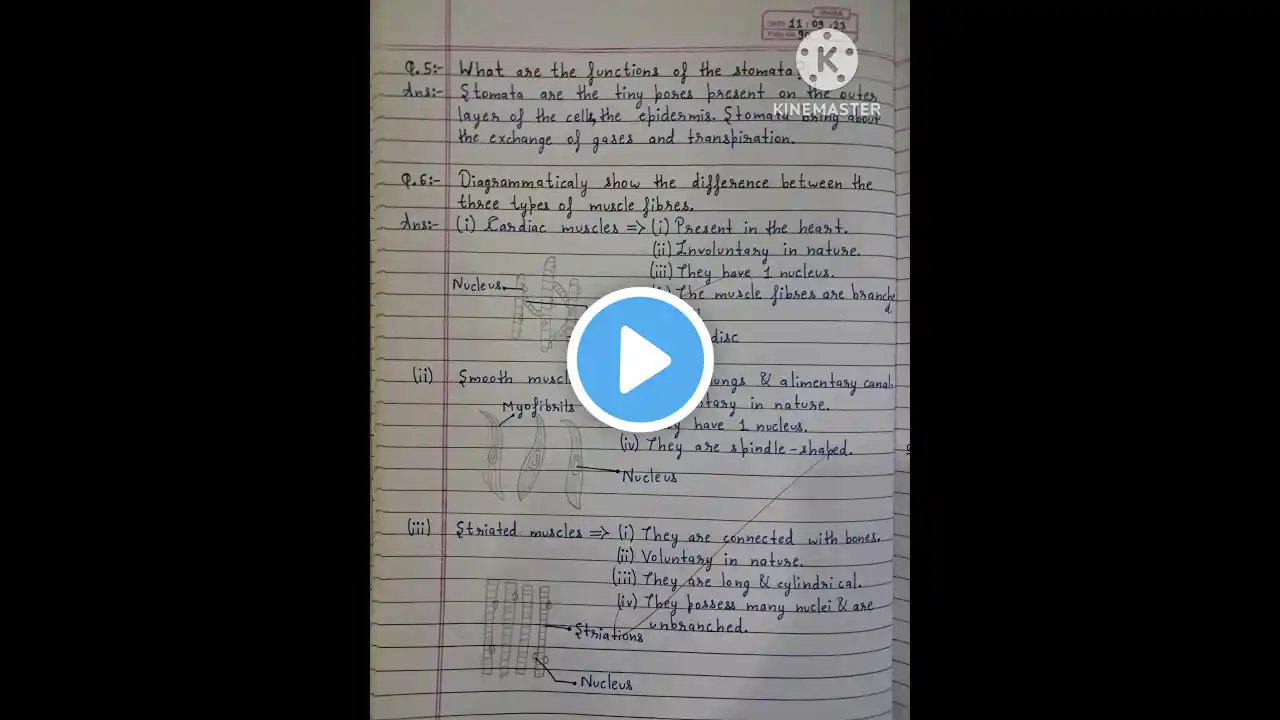 DATE 11:09:23
PAGE NO.
Q.5:- What are the functions of the stomata?
Ans:- Stomata are the tiny pores present on the outer
layer of the cells, the epidermis. Stomata bring about
the exchange of gases and transpiration.
KINEMASTER
Q.6:- Diagrammaticaly show the difference between the
three types of muscle fibres.
Ans:- (i) Cardiac muscles => (i) Present in the heart.
(ii) Involuntary in nature.
(iii) They have 1 nucleus.
Nucleus
The muscle fibres are branche
d.
disc
(ii) Smooth muscl
ungs & alimentary canal.
Myofibrils
ntary in nature.
have 1 nucleus.
(iv) They are spindle-shaped.
Nucleus
(iii) Striated muscles => (i) They are connected with bones.
(ii) Voluntary in nature.
(iii) They are long & cylindrical.
(iv) They possess many nuclei & are
unbranched.
Striations
Nucleus